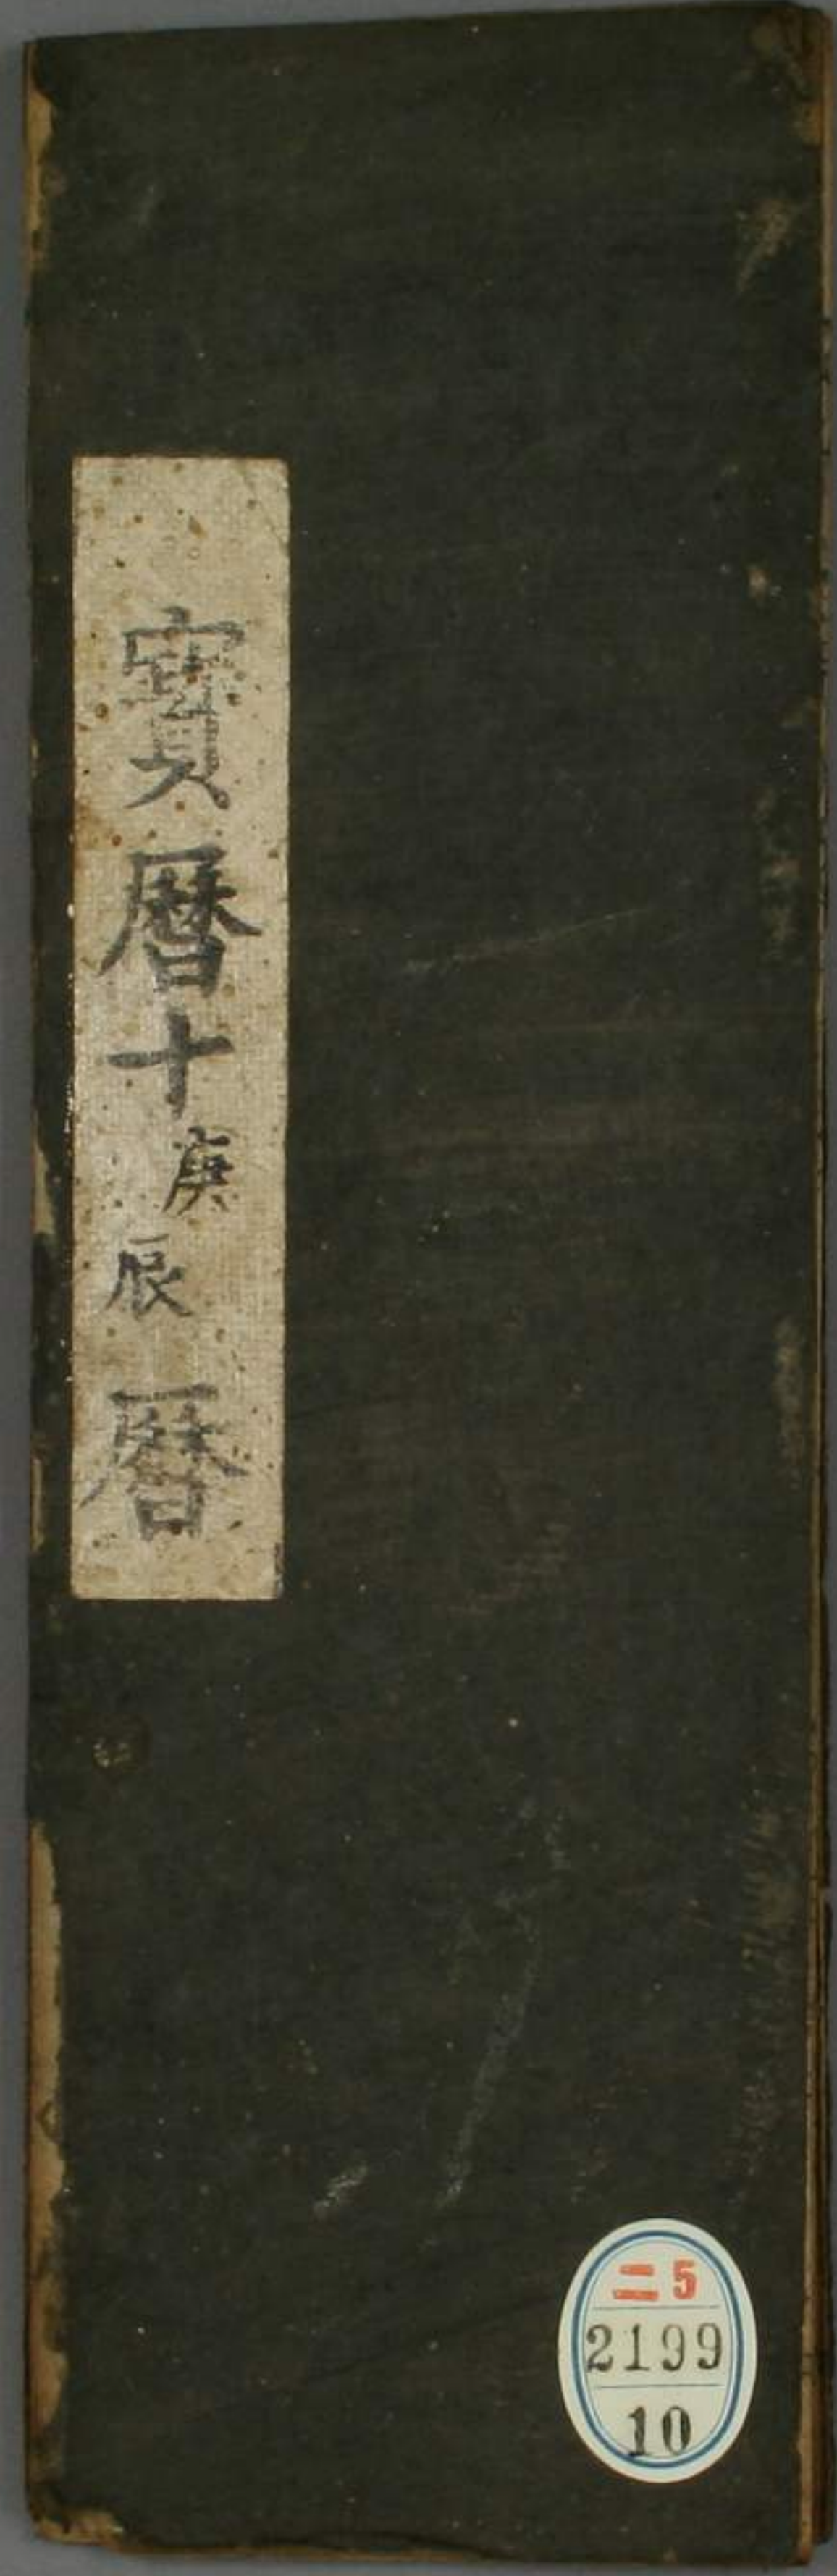 寳暦十庚辰暦
二5
2199
10